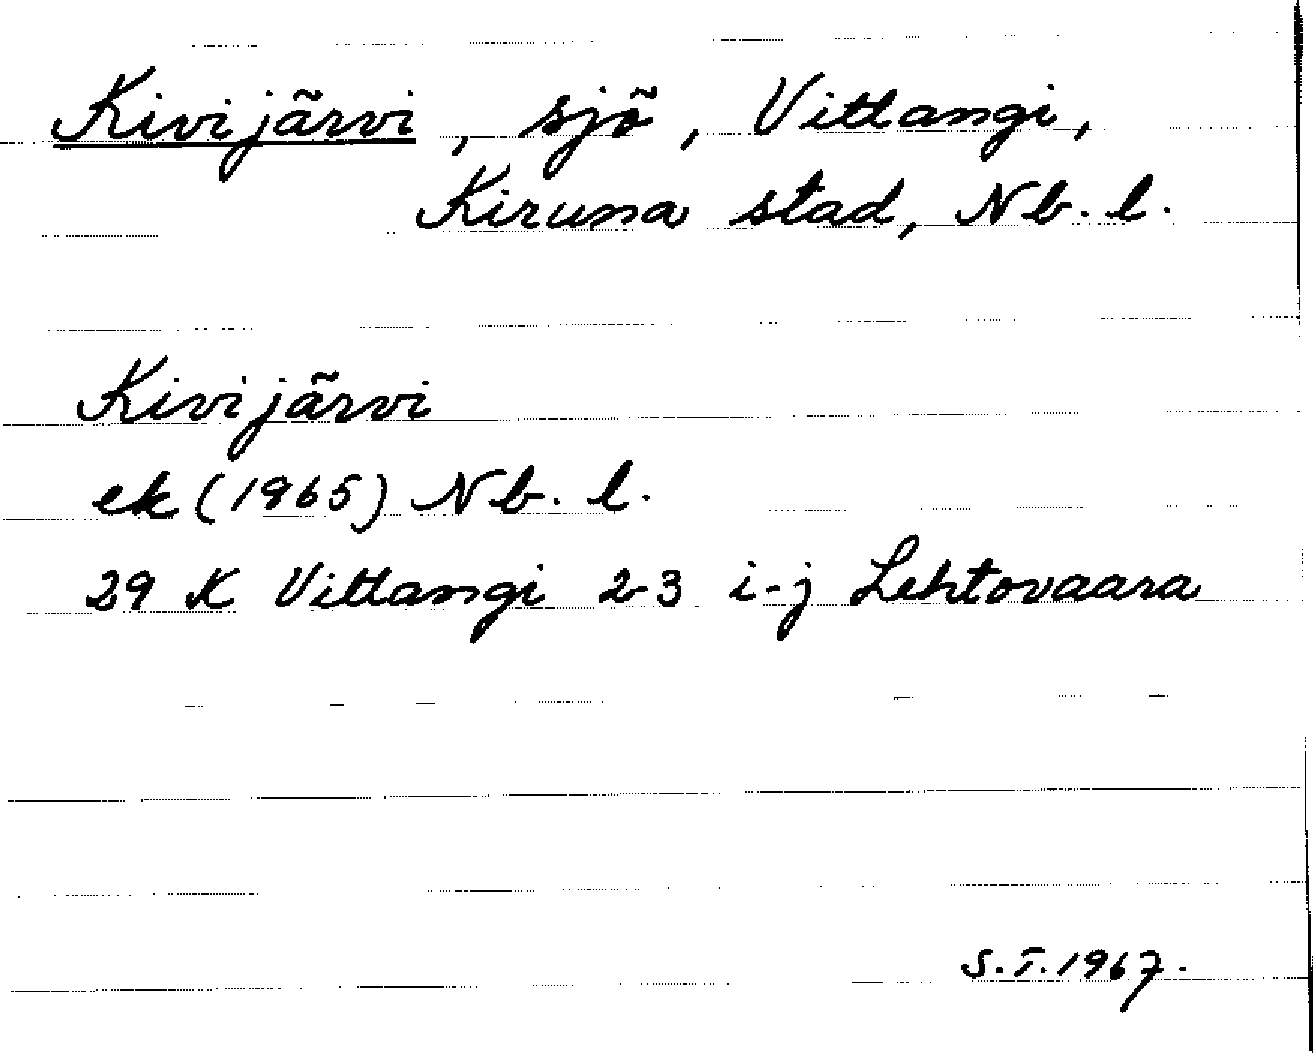 Kivijärvi, sjö, Vittangi,
Kiruna stad, Nb. l.
Kivijärvi
ek (1965) Nb. l.
29 K Vittangi 2-3 i-j Lehtovaara
S.T. 1967.